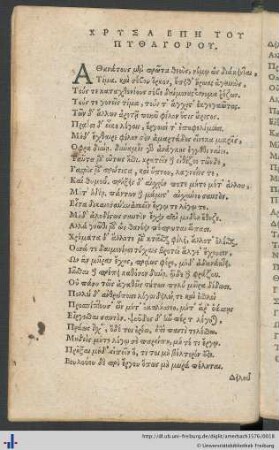 ΧΡΥΣΑ ΕΠΗ ΤΟΥ
ΠΥΘΑΓΟΡΟΥ.
Ἀθανάτους μὲν πρῶτα θεοὺς, νόμῳ ὡς διάκεινται,
Τίμα, καὶ σέβου ὅρκον, ἔπειθ' ἥρωας ἀγαυούς.
Τούς τε καταχθονίους σέβε δαίμονας, ἔννομα ῥέζων.
Τούς τε γονεῖς τίμα, τούς τ' ἄγχιστ' ἐκγεγαῶτας.
Τῶν δ' ἄλλων ἀρετῇ ποιεῦ φίλον ὅστις ἄριστος.
Πραέσι δ' εἶκε λόγοις, ἔργοισί τ' ἐπωφελίμοισι.
Μηδ' ἔχθαιρε φίλον σὸν ἁμαρτάδος εἵνεκα μικρῆς,
Ὄφρα δύνῃ. δύναμις γὰρ ἀνάγκης ἐγγύθι ναίει.
Ταῦτα μὲν οὕτως ἴσθι, κρατεῖν δ' εἰθίζεο τῶνδε,
Γαστρὸς μὲν πρώτιστα, καὶ ὕπνου, λαγνείης τε,
Καὶ θυμοῦ. πρήξεις δ' αἰσχρόν ποτε μήτε μετ' ἄλλου,
Μήτ' ἰδίῃ. πάντων δὲ μάλιστ' αἰσχύνεο σαυτόν.
Εἶτα δικαιοσύνην ἀσκεῖν ἔργῳ τε λόγῳ τε.
Μηδ' ἀλογίστως σαυτὸν ἔχειν περὶ μηδὲν ἔθιζε.
Ἀλλὰ γνῶθι μὲν ὡς θανέειν πέπρωται ἅπασι.
Χρήματα δ' ἄλλοτε μὲν κτᾶσθαι φιλεῖ, ἄλλοτ' ὀλέσθαι.
Ὅσσα τε δαιμονίαισι τύχαις βροτοὶ ἄλγε' ἔχουσιν,
Ὧν ἂν μοῖραν ἔχῃς, πράως φέρε, μηδ' ἀγανάκτει.
Ἰᾶσθαι δὲ πρέπει καθόσον δύνῃ. ὧδε δὲ φράζευ.
Οὐ πάνυ τοῖς ἀγαθοῖς τούτων πολὺ μοῖρα δίδωσι.
Πολλοὶ δ' ἀνθρώποισι λόγοι δειλοί τε καὶ ἐσθλοὶ
Προσπίπτουσ', ὧν μήτ' ἐκπλήσσεο, μήτ' ἄρ' ἐάσῃς
Εἴργεσθαι σαυτόν. ψεῦδος δ' ἤν πέρ τι λέγηται,
Πράως ἴσχ'. ὃ δέ τοι ἐρέω, ἐπὶ παντὶ τελείσθω.
Μηδεὶς μήτε λόγῳ σε παρείπῃ, μήτε τι ἔργῳ,
Πρῆξαι μηδ' εἰπεῖν, ὅ, τι σοι μὴ βέλτερόν ἐστι.
Βουλεύου δὲ πρὸ ἔργου ὅπως μὴ μωρὰ πέληται.
Δειλοῦ
© Universitätsbibliothek Freiburg